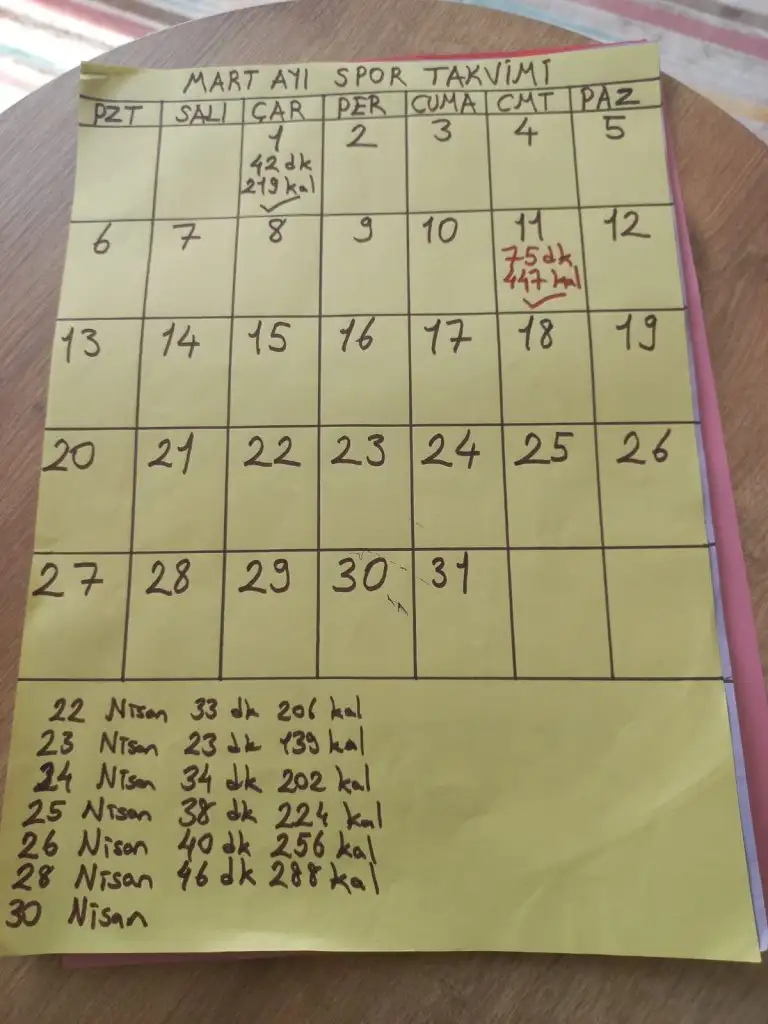 MART AYI SPOR TAKVİMİ
PZT SALI ÇAR PER CUMA CMT PAZ
1 2 3 4 5
42 dk
219 kal
6 7 8 9 10 11 12
75 dk
447 kal
13 14 15 16 17 18 19
20 21 22 23 24 25 26
27 28 29 30 31
22 Nisan 33 dk 206 kal
23 Nisan 23 dk 139 kal
24 Nisan 34 dk 202 kal
25 Nisan 38 dk 224 kal
26 Nisan 40 dk 256 kal
28 Nisan 46 dk 288 kal
30 Nisan